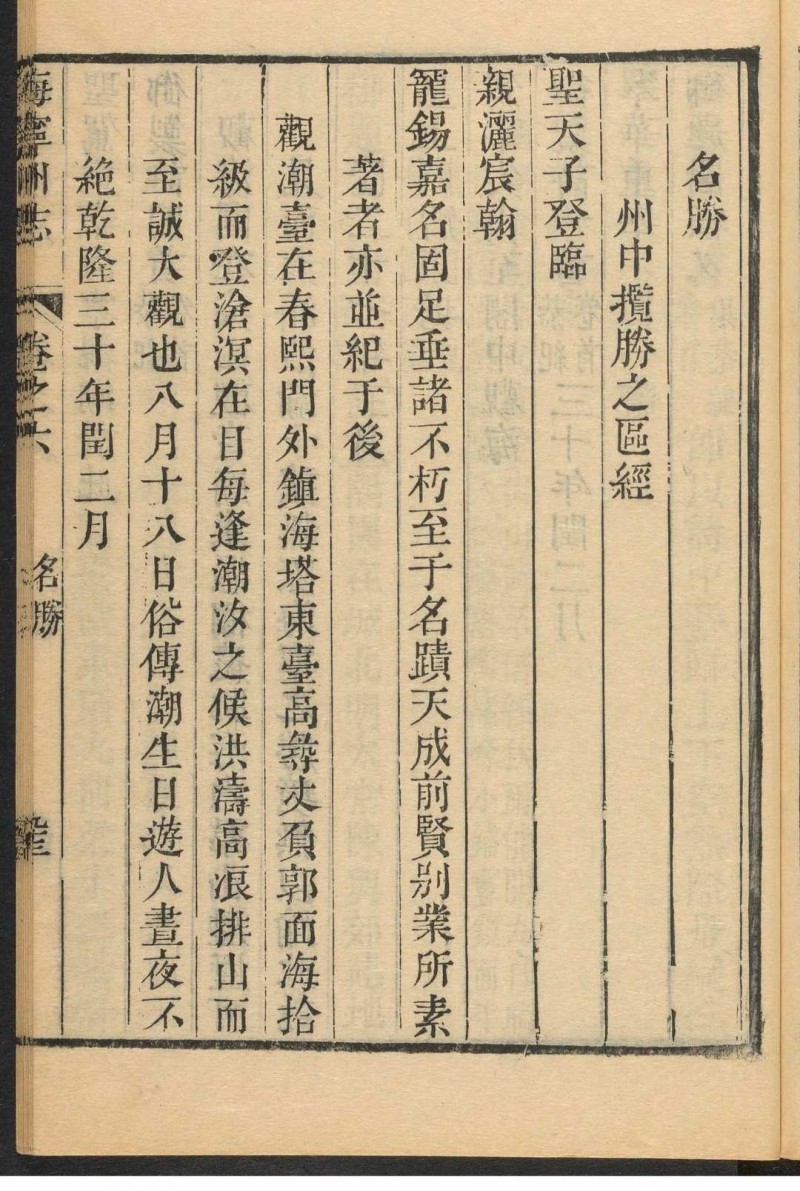 名勝
州中攬勝之區經
聖天子登臨
親灑宸翰
龍錫嘉名固足垂諸不朽至于名蹟天成前賢別業所素
著者亦並紀于後
觀潮臺在春熙門外鎮海塔東臺高尋丈負郭面海拾
級而登滄溟在目每逢潮汐之候洪濤高浪排山而
至誠大觀也八月十八日俗傳潮生日遊人晝夜不
絶乾隆三十年閏二月
海寧州志 卷之六 名勝